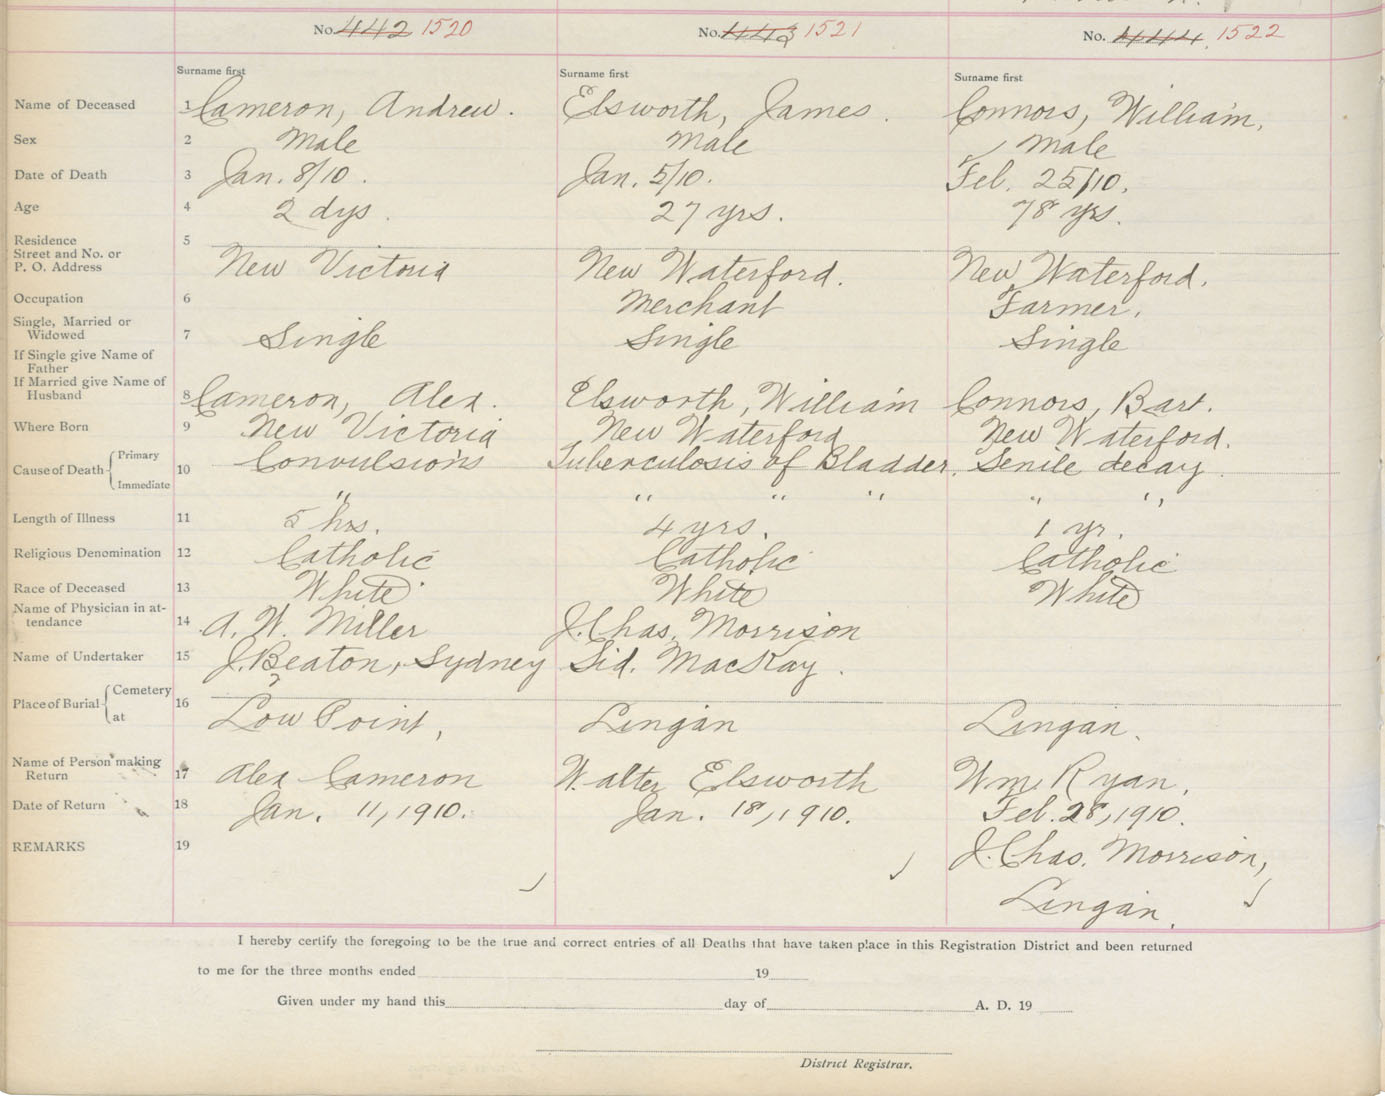 No. 442 1520 No. 443 1521 No. 444. 1522
Surname first Surname first Surname first
Name of Deceased 1 Cameron, Andrew. Elsworth, James. Connors, William.
Sex 2 Male Male Male
Date of Death 3 Jan. 8/10. Jan. 5/10. Feb. 25/10.
Age 4 2 dys. 27 yrs. 78 yrs.
Residence 5
Street and No. or
P. O. Address New Victoria New Waterford. New Waterford.
Occupation 6 Merchant Farmer.
Single, Married or
Widowed 7 Single Single Single
If Single give Name of
Father
If Married give Name of
Husband 8 Cameron, Alex. Elsworth, William Connors, Bart.
Where Born 9 New Victoria New Waterford New Waterford.
Cause of Death { Primary 10 Convulsions Tuberculosis of Bladder. Senile decay.
Immediate " " " " " "
Length of Illness 11 5 hrs. 4 yrs. 1 yr.
Religious Denomination 12 Catholic Catholic Catholic
Race of Deceased 13 White White White
Name of Physician in at-
tendance 14 A. W. Miller J. Chas. Morrison
Name of Undertaker 15 J. Beaton, Sydney Sid. MacKay.
Place of Burial { Cemetery 16
at Low Point, Lingan Lingan.
Name of Person making
Return 17 Alex Cameron Walter Elsworth Wm. Ryan.
Date of Return 18 Jan. 11, 1910. Jan. 18, 1910. Feb. 28, 1910.
REMARKS 19 J. Chas. Morrison,
Lingan.
I hereby certify the foregoing to be the true and correct entries of all Deaths that have taken place in this Registration District and been returned
to me for the three months ended 19
Given under my hand this day of A. D. 19
District Registrar.